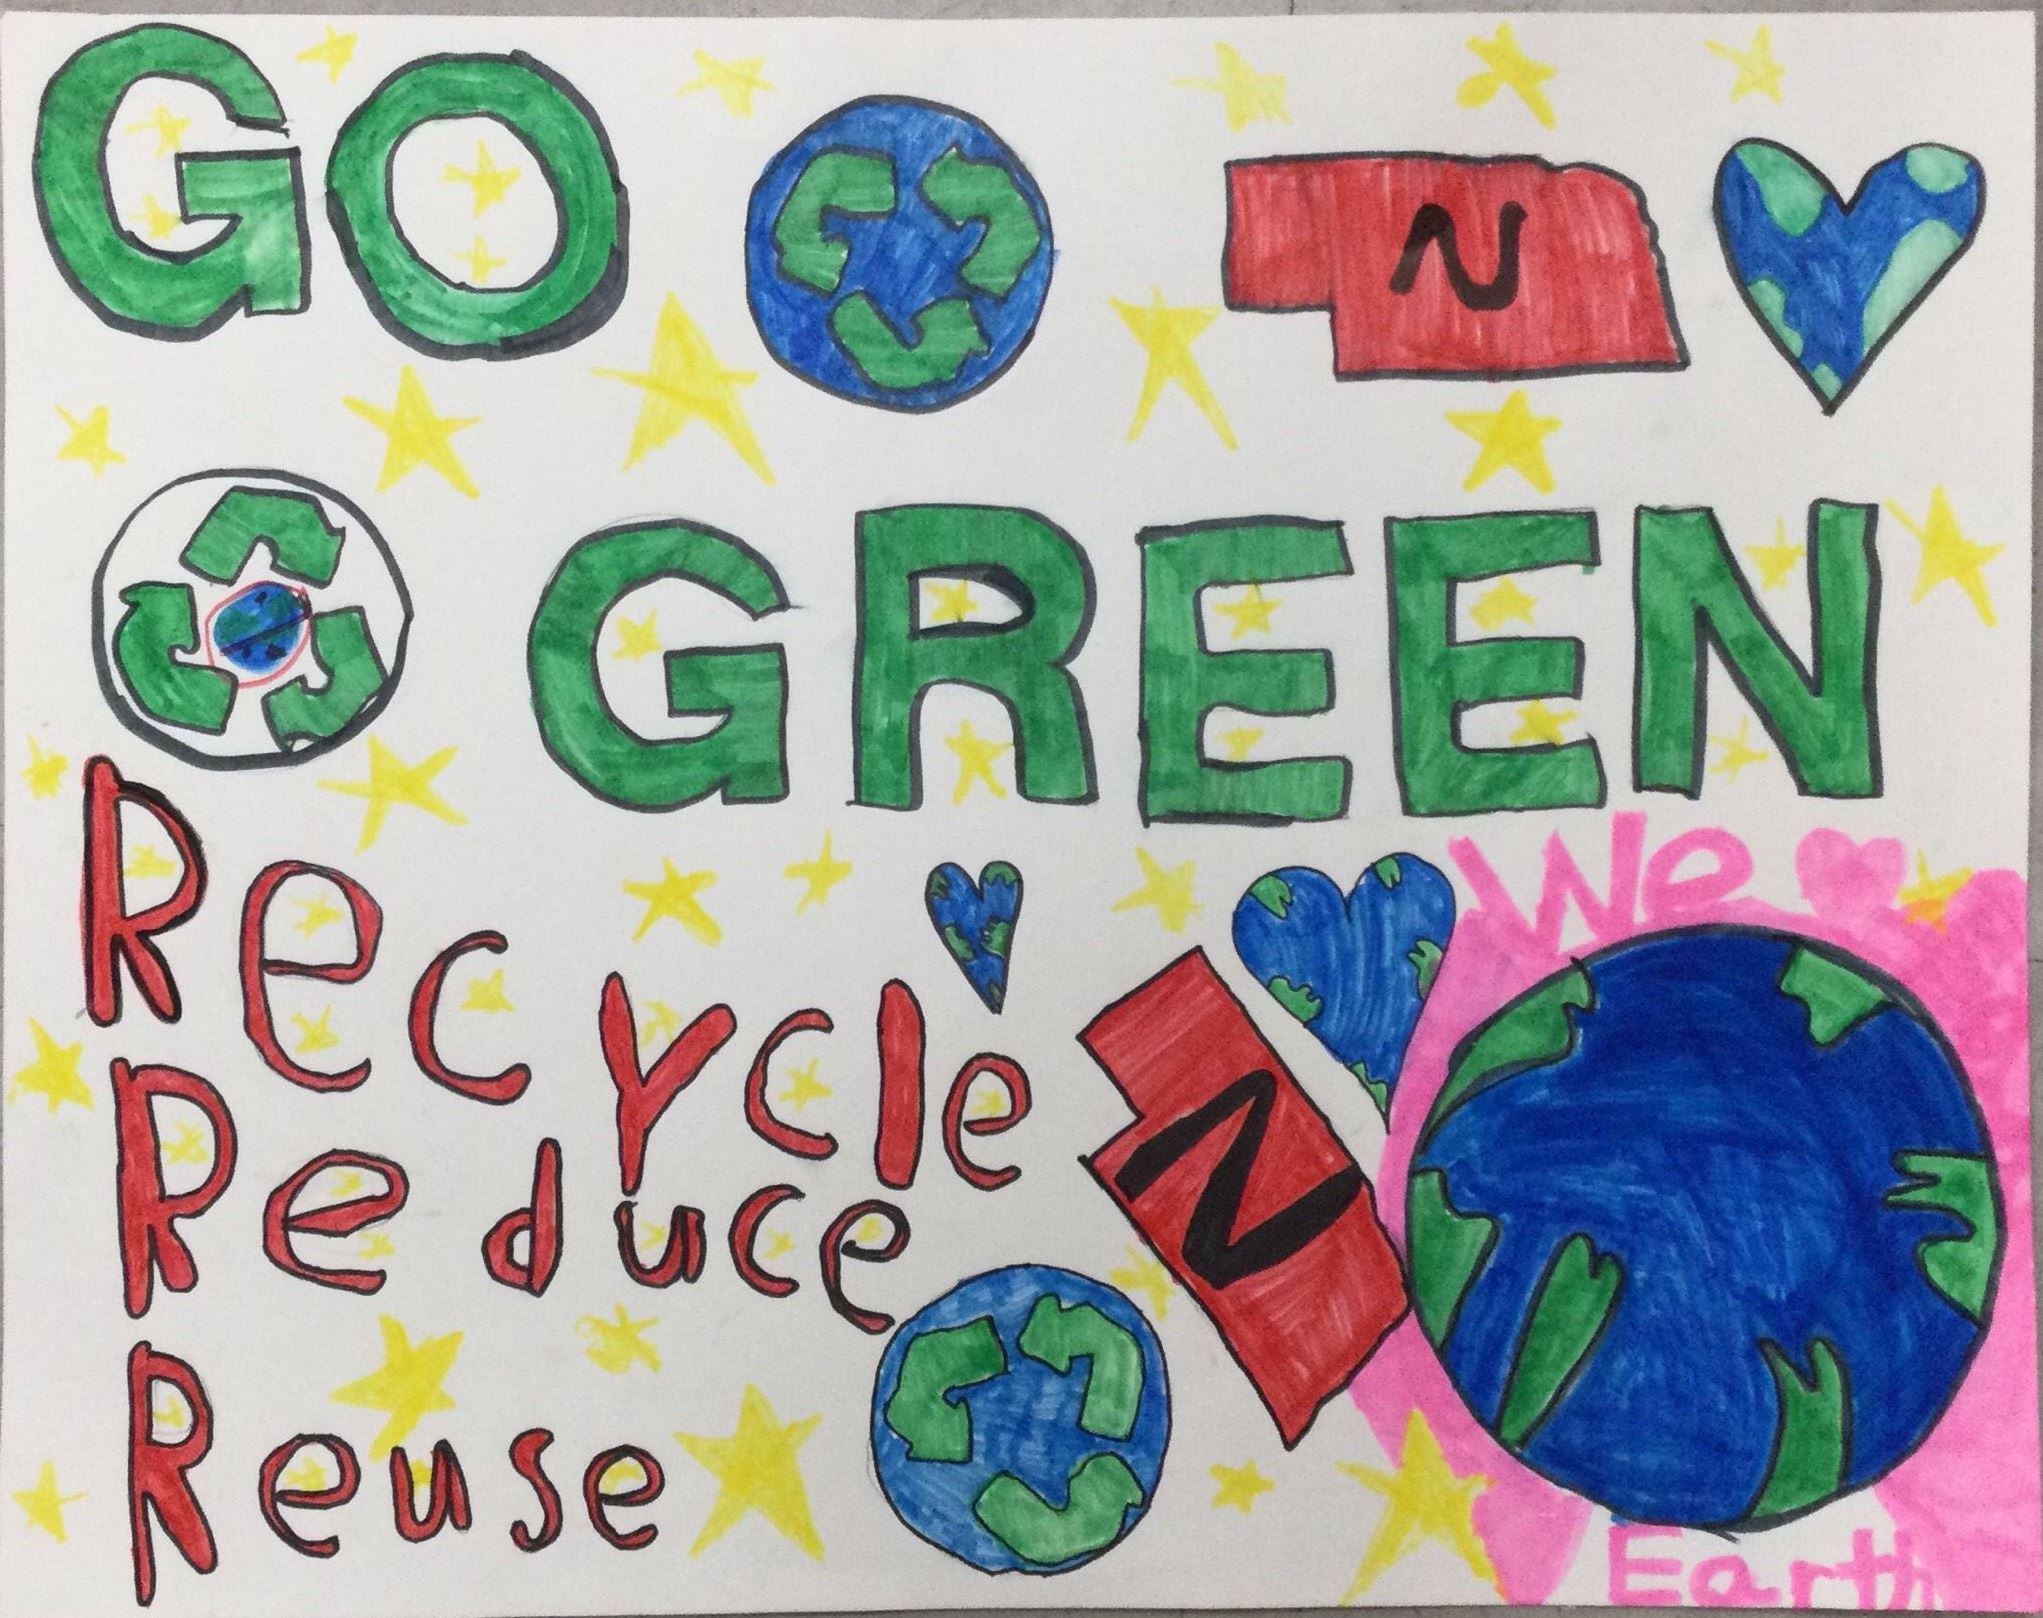 GO
N
GREEN
Recycle
Reduce
Reuse
N
We
Earth